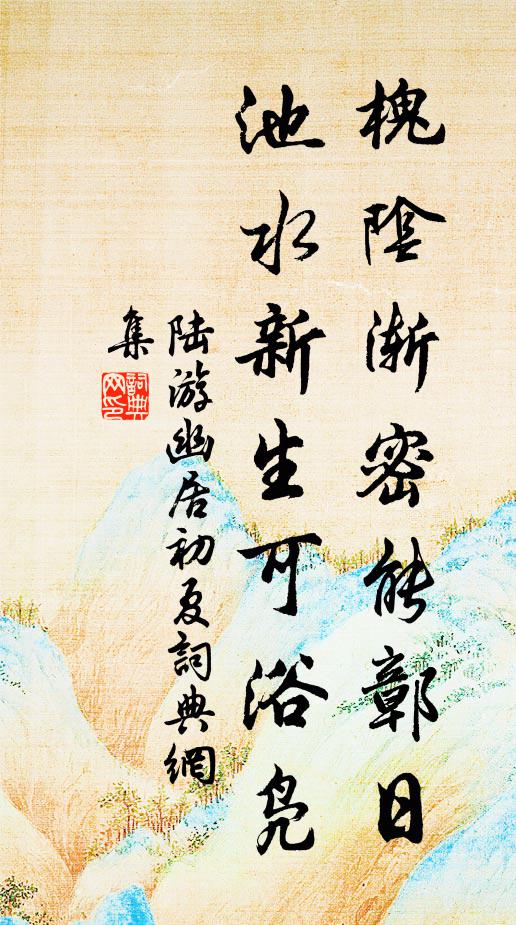 槐陰漸密能鄣日
池水新生可浴鳧
陆游幽居初夏詞典網
集
詞典
网印